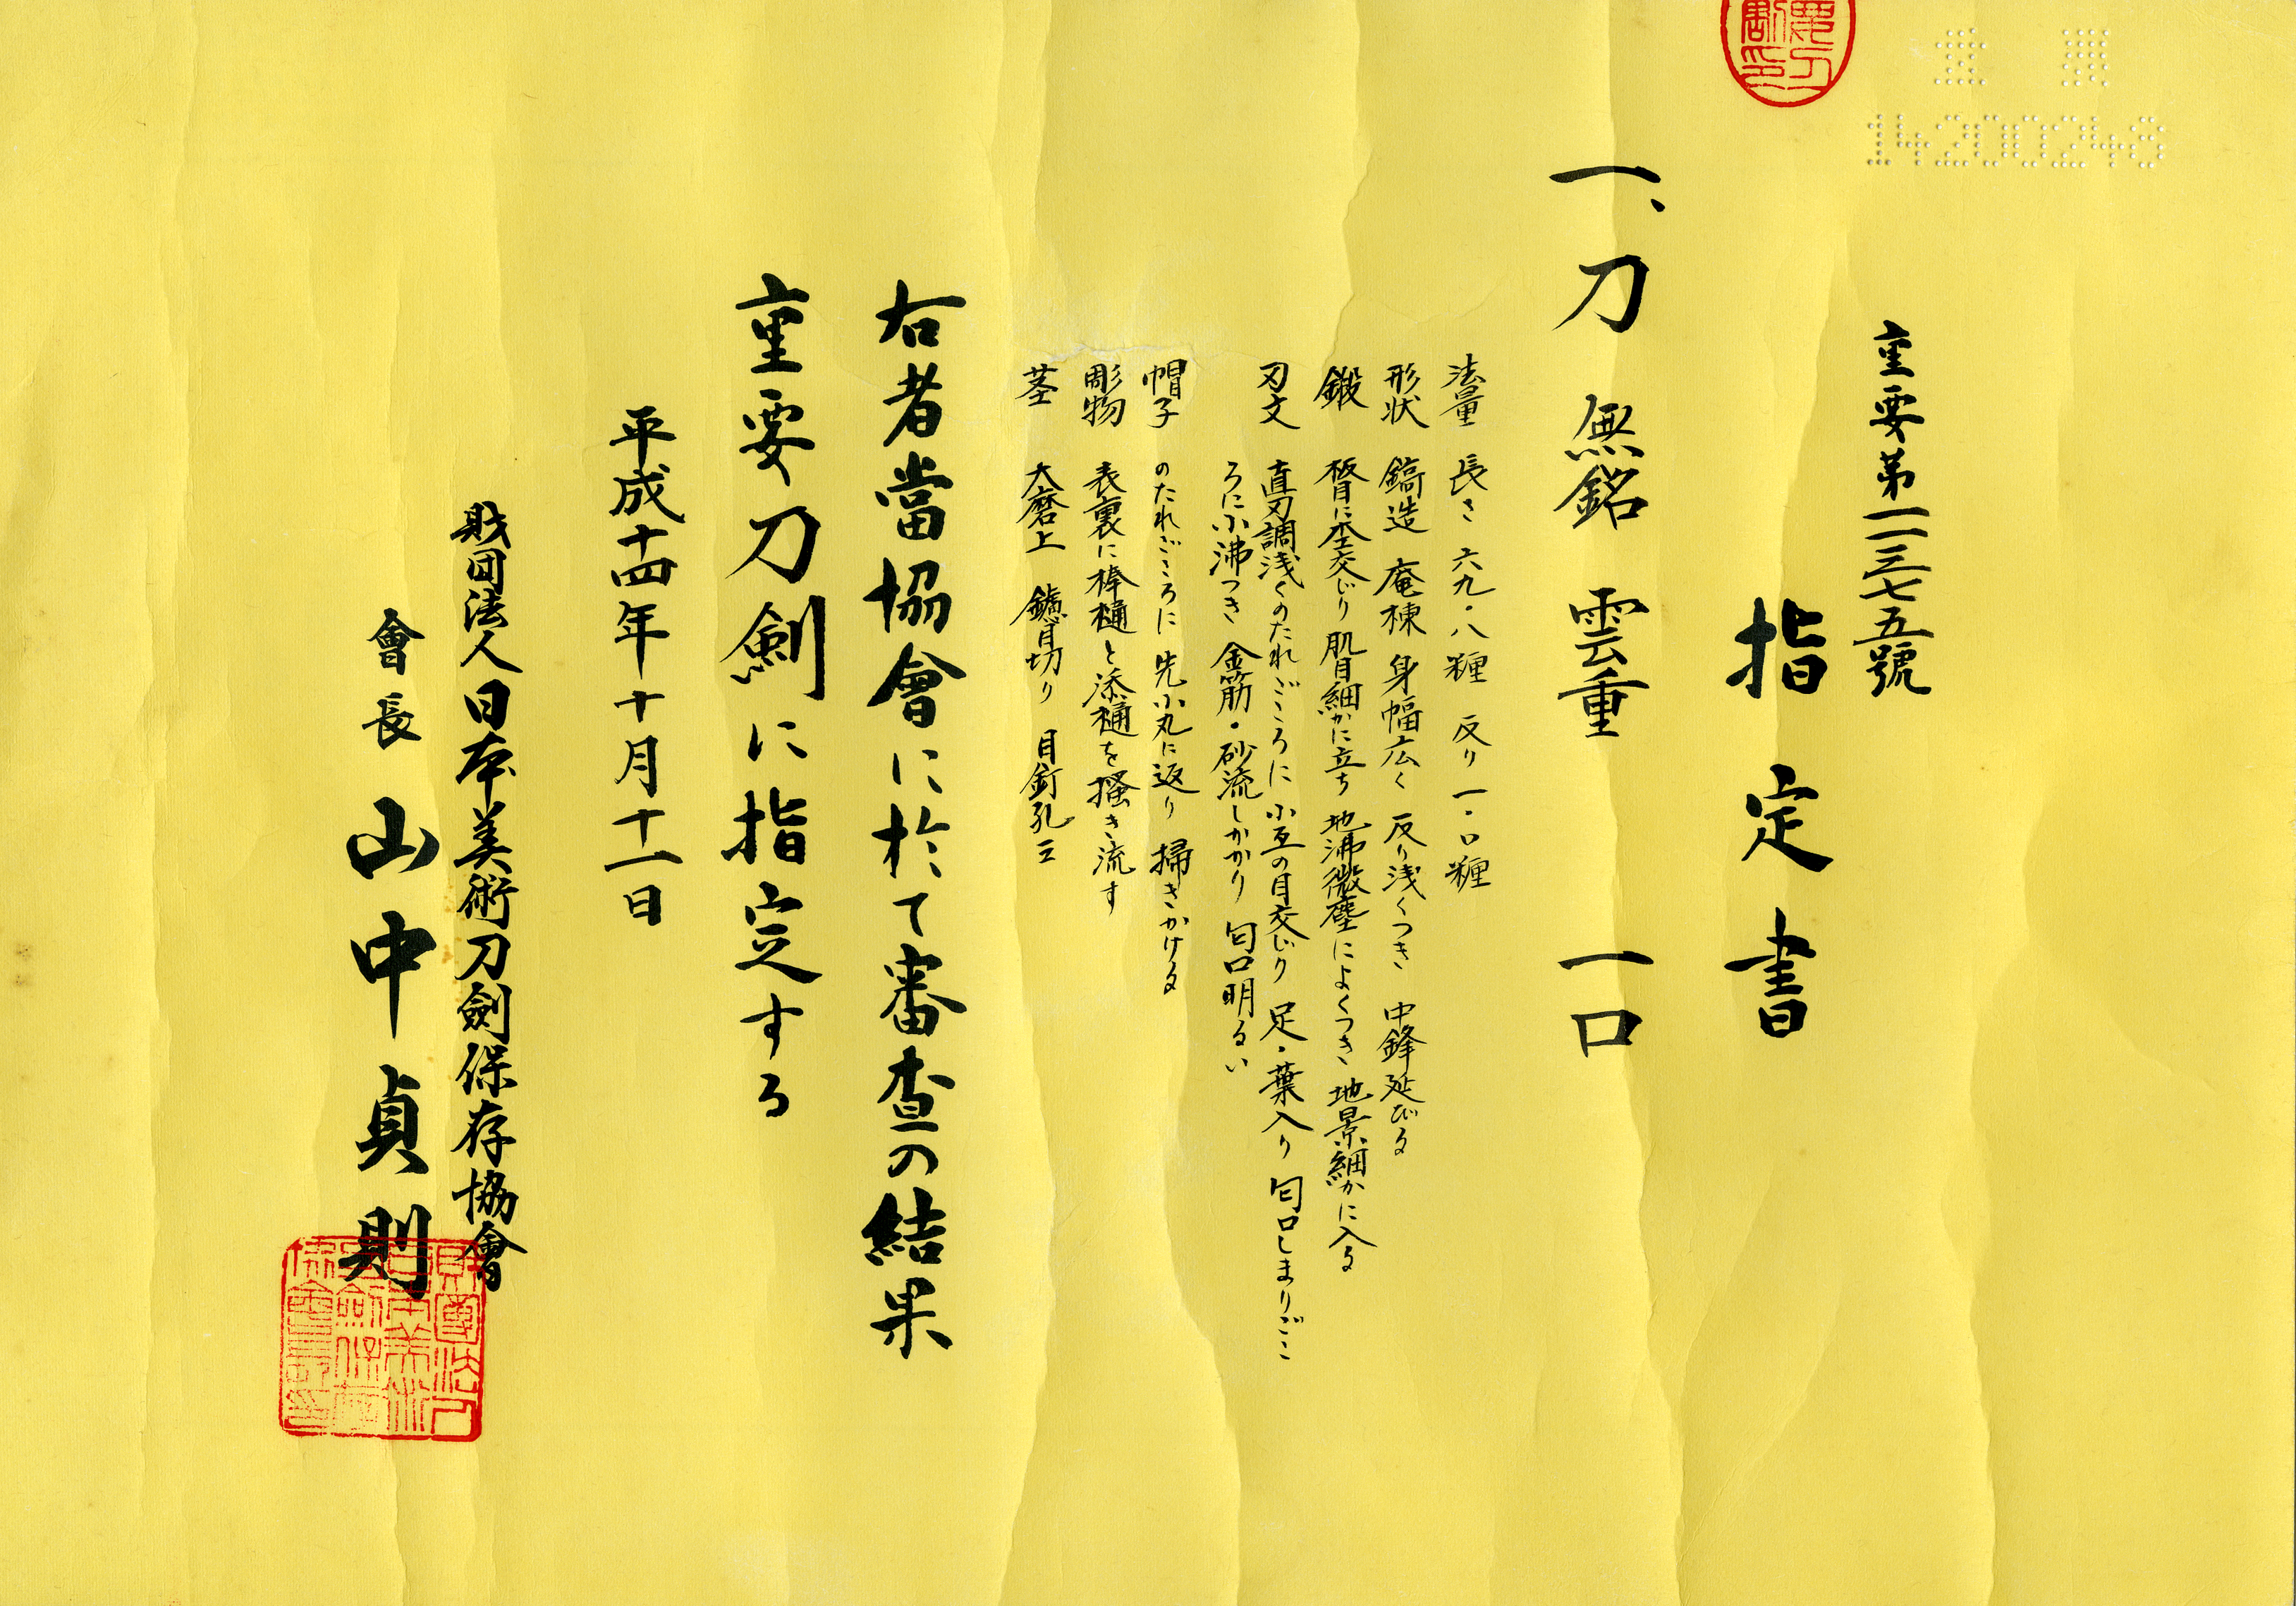 14200248
重要第一一三七五號
指定書
一、刀 無銘 雲重 一口
法量 長さ 六九・八糎 反り 一・〇糎
形状 鎬造 庵棟 身幅広く 反り浅くつき 中鋒延びる
鍛 板目に杢交じり 肌目細かに立ち 地沸微塵によくつき 地景細かに入る
刃文 直刃調浅くのたれごころに 小互の目交じり 足・葉入り 匂口しまりごこ
ろに小沸つき 金筋・砂流しかかり 匂口明るい
帽子 のたれごころに 先小丸に返り 掃きかける
彫物 表裏に棒樋と添樋を掻き流す
茎 大磨上 鑢目切り 目釘孔三
右者當協會に於て審査の結果
重要刀劍に指定する
平成十四年十月十一日
財団法人日本美術刀劍保存協會
會長 山中貞則